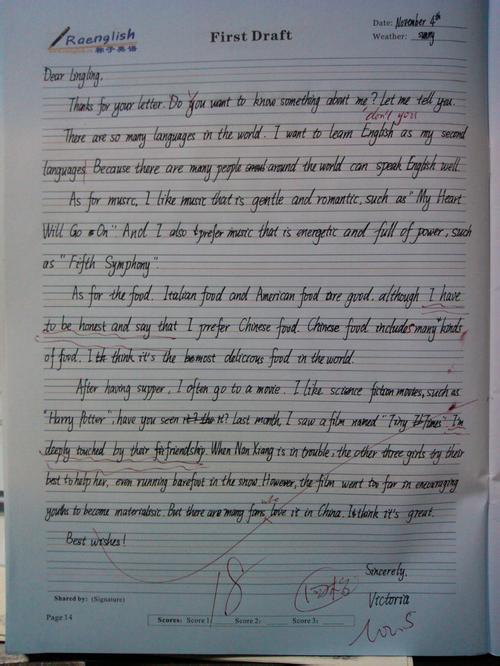 Raenglish
First Draft
Date: November 4th
Weather: sunny
Dear Lingling,
Thanks for your letter. Do you want to know something about me? Let me tell you.
don't you
There are so many languages in the world. I want to learn English as my second
languages. Because there are many people around the world can speak English well.
As for music, I like music that is gentle and romantic, such as "My Heart
Will Go On". And I also prefer music that is energetic and full of power, such
as "Fifth Symphony".
As for the food. Italian food and American food are good. although I have
to be honest and say that I prefer Chinese food. Chinese food includes many kinds
of food. I think it's the most delicious food in the world.
After having supper, I often go to a movie. I like science fiction movies, such as
"Harry Potter", have you seen it? Last month, I saw a film named "Tiny Times" I'm
deeply touched by their friendship. When Nan Xiang is in trouble, the other three girls try their
best to help her, even running barefoot in the snow. However, the film went too far in encouraging
who
youths to become materialsic. But there are many fans love it in China. I think it's great.
Best wishes!
Sincerely,
Victoria
18
Shared by: (Signature)
Page 14
Scores: Score 1: Score 2: Score 3: